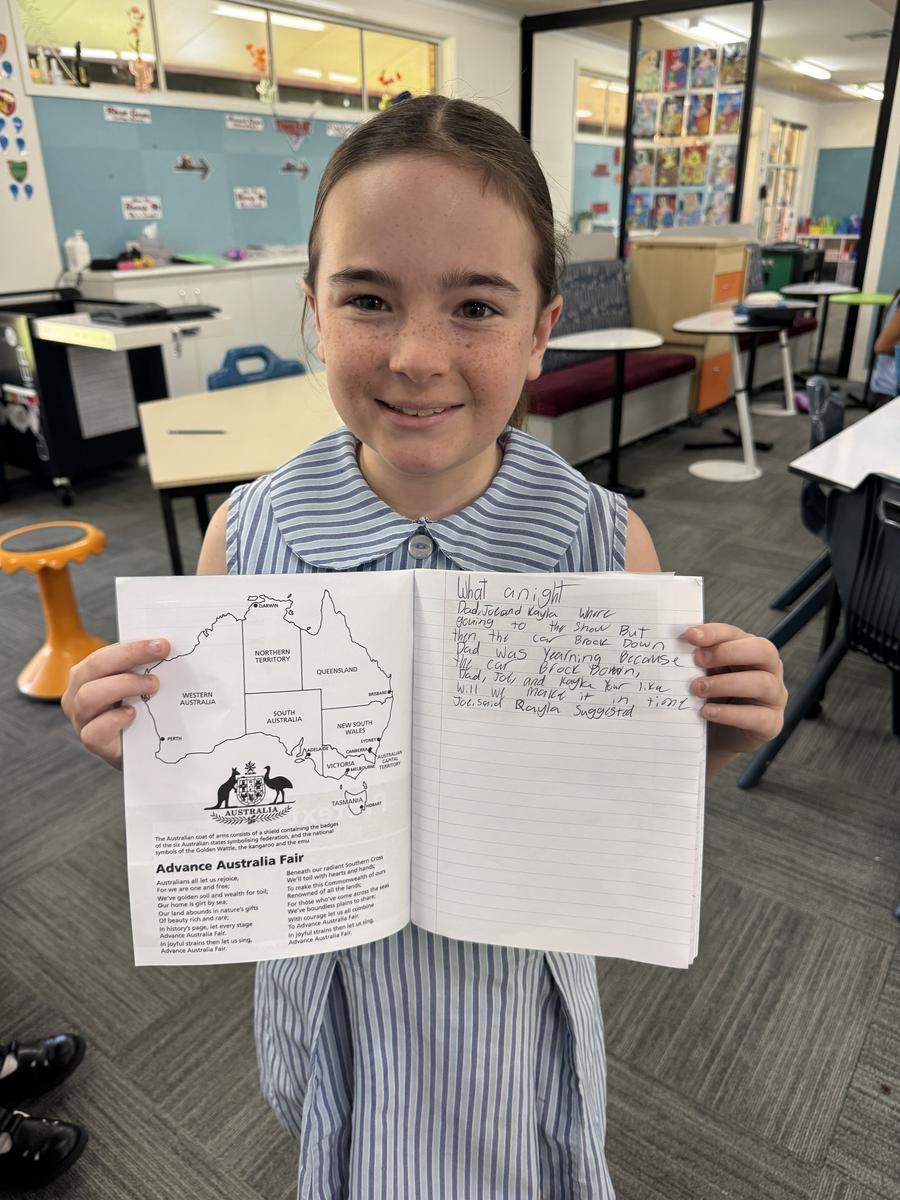 DARWIN
NORTHERN
TERRITORY
QUEENSLAND
WESTERN
AUSTRALIA
BRISBANE
SOUTH
AUSTRALIA
NEW SOUTH
WALES
PERTH
SYDNEY
ADELAIDE
CANBERRA
AUSTRALIAN
CAPITAL
TERRITORY
VICTORIA
MELBOURNE
TASMANIA
HOBART
AUSTRALIA
The Australian coat of arms consists of a shield containing the badges
of the six Australian states symbolising federation, and the national
symbols of the Golden Wattle, the kangaroo and the emu.
Advance Australia Fair
Australians all let us rejoice,
For we are one and free;
We've golden soil and wealth for toil;
Our home is girt by sea;
Our land abounds in nature's gifts
Of beauty rich and rare;
In history's page, let every stage
Advance Australia Fair.
In joyful strains then let us sing,
Advance Australia Fair.
Beneath our radiant Southern Cross
We'll toil with hearts and hands;
To make this Commonwealth of ours
Renowned of all the lands;
For those who've come across the seas
We've boundless plains to share;
With courage let us all combine
To Advance Australia Fair.
In joyful strains then let us sing,
Advance Australia Fair.
What a night
Dad, Joe and Kayla where
going to the show But
then the car Brock Down
Dad was yearning Because
the car Brock Down,
Dad, Joe, and Kayla Your like
will we make it in time
Joe. said Kayla Suggested